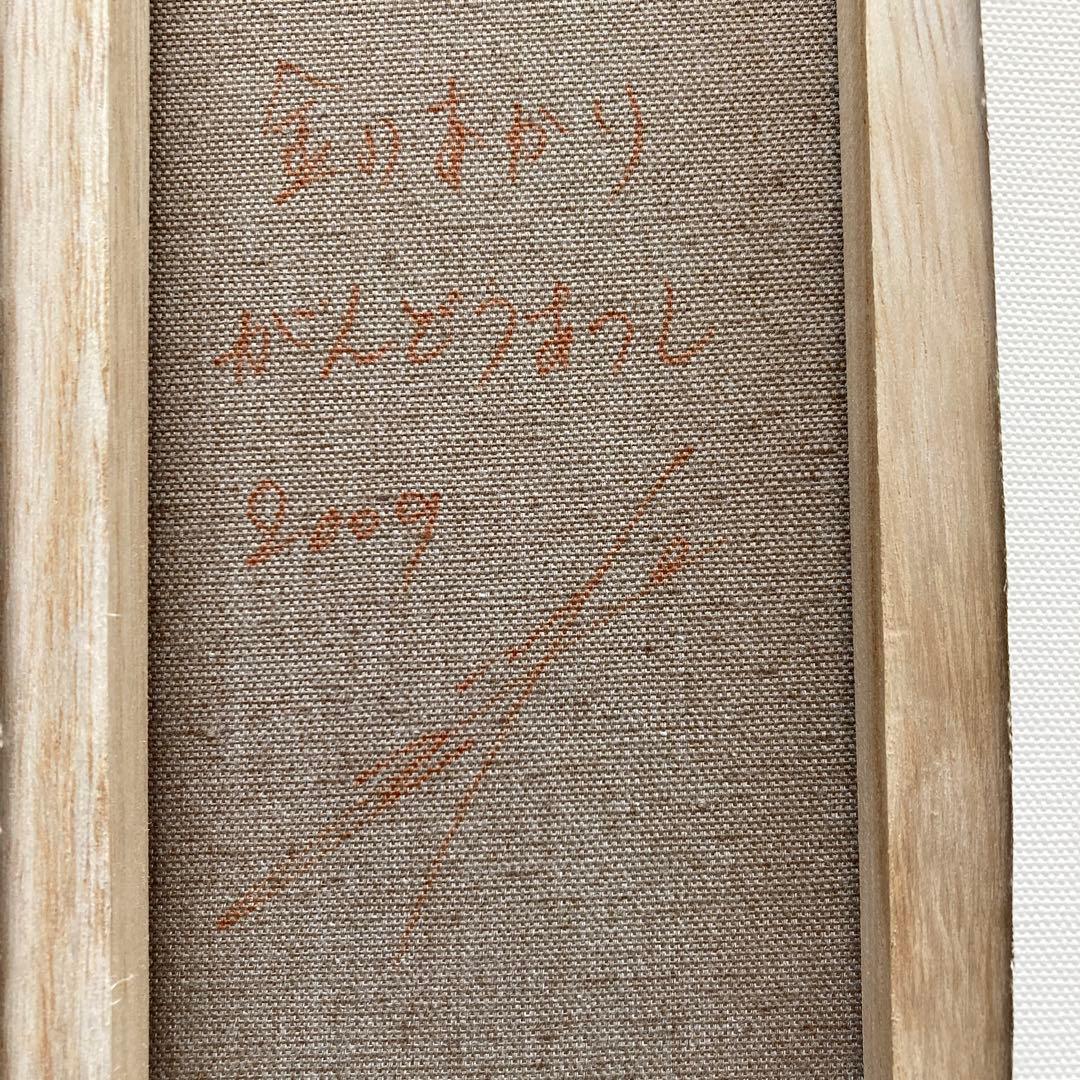 金のあかり
がんどうあつし
2009